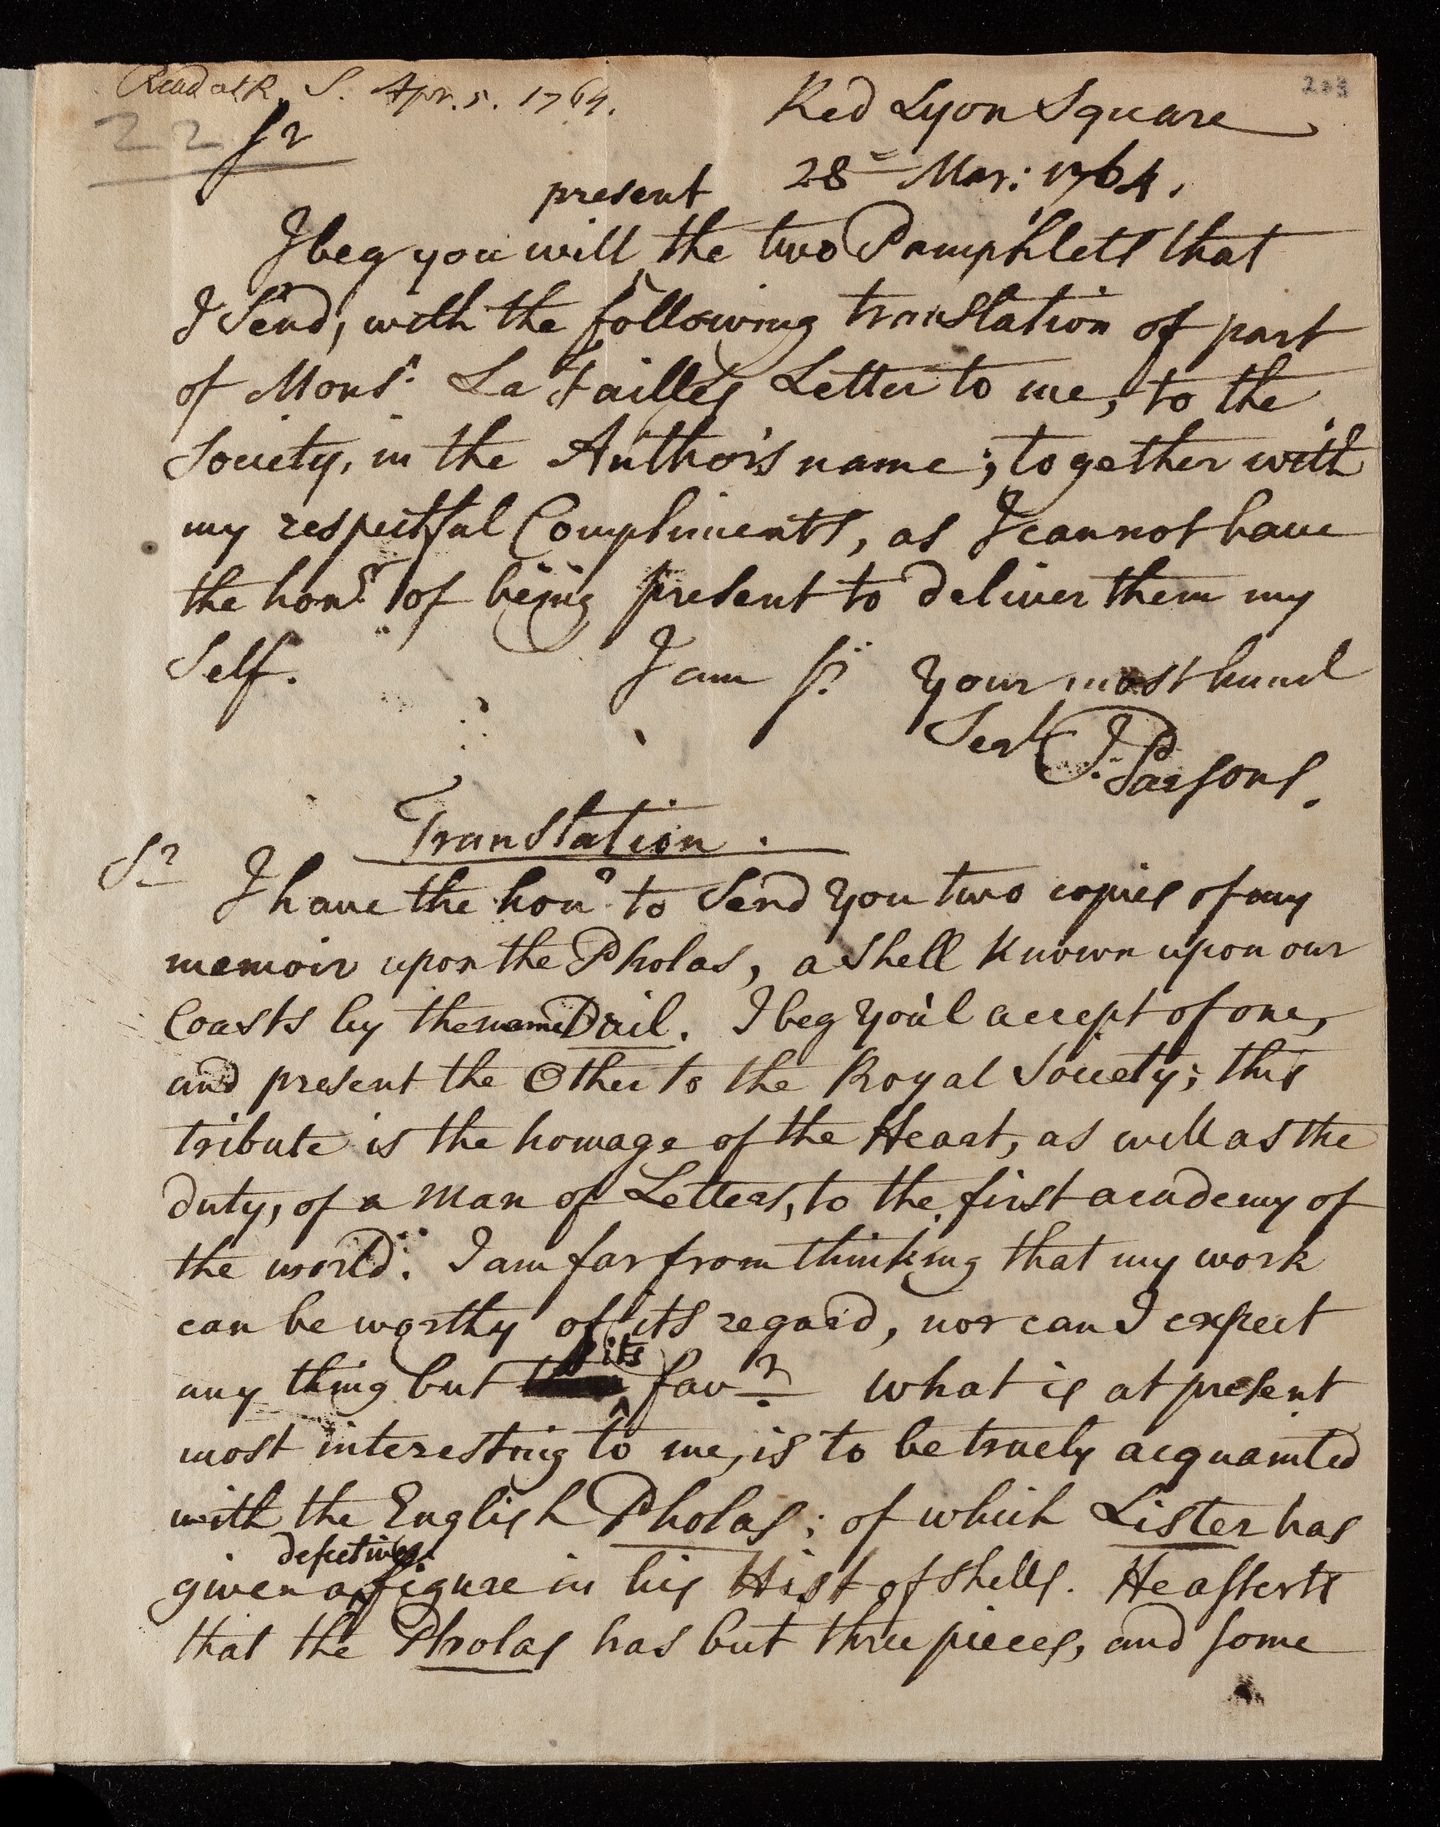 Read at R. S. Apr. 5. 1764.
203
22
Sr
Red Lyon Square
28 Mar: 1764.
present
I beg you will ^ the two Pamphlets that
I Send, with the following translation of part
of Monsr. La Faille's Letter to me, to the
Society, in the Author's name; together with
my respectful Compliments, as I cannot have
the honr. of being present to deliver them my
Self. I am Sr. Your most huml
Servt J. Parsons.
Translation.
Sr
I have the honr. to Send You two copies of my
memoir upon the Pholas, a Shell Known upon our
Coasts by the name Dail. I beg You'l accept of one,
and present the Other to the Royal Society; this
tribute is the homage of the Heart, as well as the
duty, of a Man of Letters, to the first academy of
the world. I am far from thinking that my work
can be worthy of its regard, nor can I expect
its
any thing but ^ favr. What is at present
most interesting to me, is to be truely acquainted
with the English Pholas; of which Lister has
defective
given a ^ figure in his Hist of Shells. He asserts
that the Pholas has but three pieces, and some